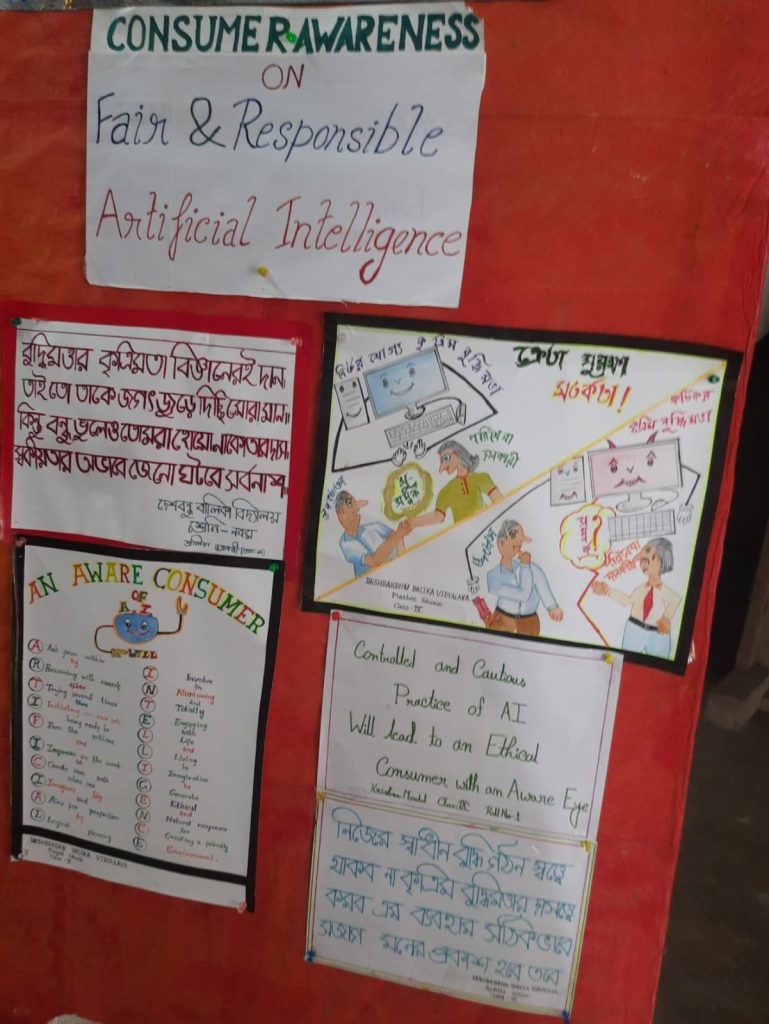 CONSUMER AWARENESS
ON
Fair & Responsible
Artificial Intelligence
বুদ্ধিমত্তার কৃত্রিমতা বিজ্ঞানেরই দান
তাই তো তাকে জগৎ জুড়ে দিচ্ছি মোরা মান।
কিন্তু বন্ধু ভুলেও তোমরা হোয়োনাকো তার দাস
স্বকীয়তার অভাব জেনো ঘটাবে সর্বনাশ।
দেশবন্ধু বালিকা বিদ্যালয়
শ্রেনি - নবম
ক্রেতা সুরক্ষা
সতর্কতা!
নির্ভর যোগ্য কৃত্রিম বুদ্ধিমত্তা
পরিষেবা
কৃত্রিম বুদ্ধিমত্তা
?
DESHBANDHU BALIKA VIDYALAYA
Class-IX
AN AWARE CONSUMER
OF
A.I
WILL
A Act from within
by
R Reasoning with remedy
after
T Trying several times
then
I Initiating own
being ready to
F Face the actions
and
I Improves in the work
to
C Create own path
when one
I Imagines big
and
A Aims for perfection
by
L Logical Planning
I Involve
in
N Nurturing
and
T Totally
E Engaging
with
L Life
and
L Living
in
I Imagination
to
G Generate
E Ethical
and
N Natural responses
for
C Creating a friendly
E Environment.
DESHBANDHU BALIKA VIDYALAYA
Class - X
Controlled and Cautious
Practice of AI
Will lead to an Ethical
Consumer with an Aware Eye
Krishna Mondal Class-IX Roll No-1
নিজের স্বাধীন বুদ্ধি গঠন স্বত্বে
থাকব না কৃত্রিম বুদ্ধিমত্তার দাসত্বে
করব এর ব্যবহার সঠিকভাবে
সজাগ মনের প্রকাশ হবে তবে
DESHBANDHU BALIKA VIDYALAYA